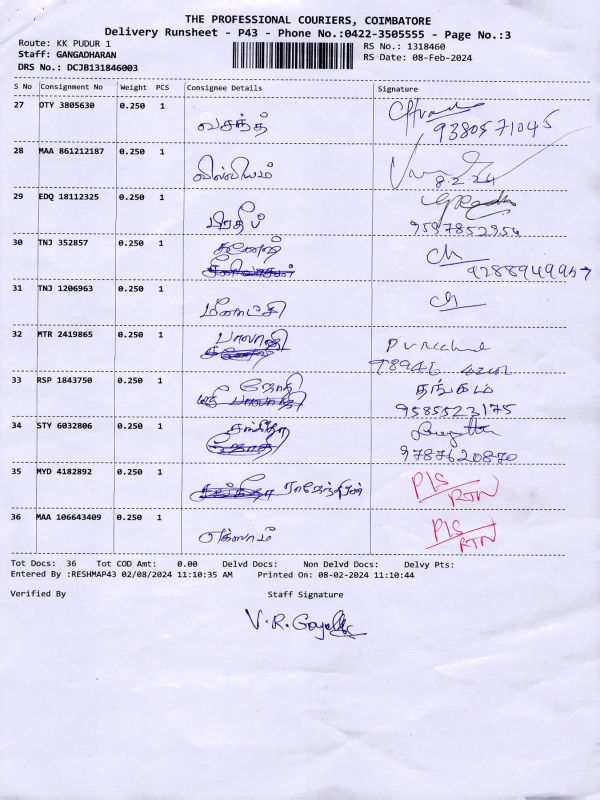 THE PROFESSIONAL COURIERS, COIMBATORE
Delivery Runsheet - P43 - Phone No.:0422-3505555 - Page No.:3
Route: KK PUDUR 1
RS No.: 1318460
Staff: GANGADHARAN
RS Date: 08-Feb-2024
DRS No.: DCJB131846003
S No Consignment No Weight PCS Consignee Details Signature
27 DTY 3805630 0.250 1 வசந்த்
9380571045
28 MAA 861212187 0.250 1
8.2.24
29 EDQ 18112325 0.250 1 பிரதீப்
9597852954
30 TNJ 352857 0.250 1 கணேஷ்
31 TNJ 1206963 0.250 1 மீனாட்சி
32 MTR 2419865 0.250 1 பாலாஜி
33 RSP 1843750 0.250 1 ஜோதி தங்கம்
9585523175
34 STY 6032806 0.250 1
9787620870
35 MYD 4182892 0.250 1 ராஜேந்திரன் PIS
RTN
36 MAA 106643409 0.250 1 PIS
RTN
Tot Docs: 36 Tot COD Amt: 0.00 Delvd Docs: Non Delvd Docs: Delvy Pts:
Entered By :RESHMAP43 02/08/2024 11:10:35 AM Printed On: 08-02-2024 11:10:44
Verified By Staff Signature